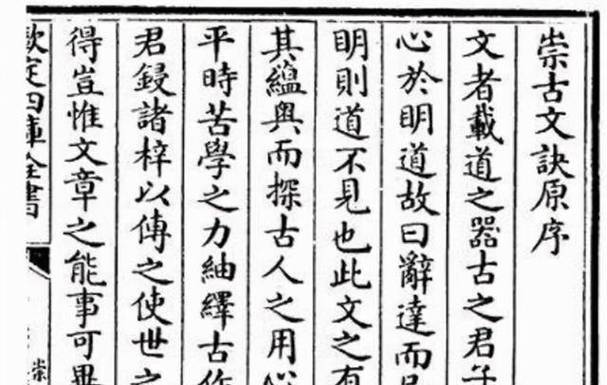 崇古文訣原序
文者載道之器古之君子
心於明道故曰辭達而
明則道不見也此文之有
其蘊奥而探古人之用心
平時苦學之力紬繹古作
君鋟諸梓以傳之使世之
得豈惟文章之能事可畢
欽定四庫全書
崇